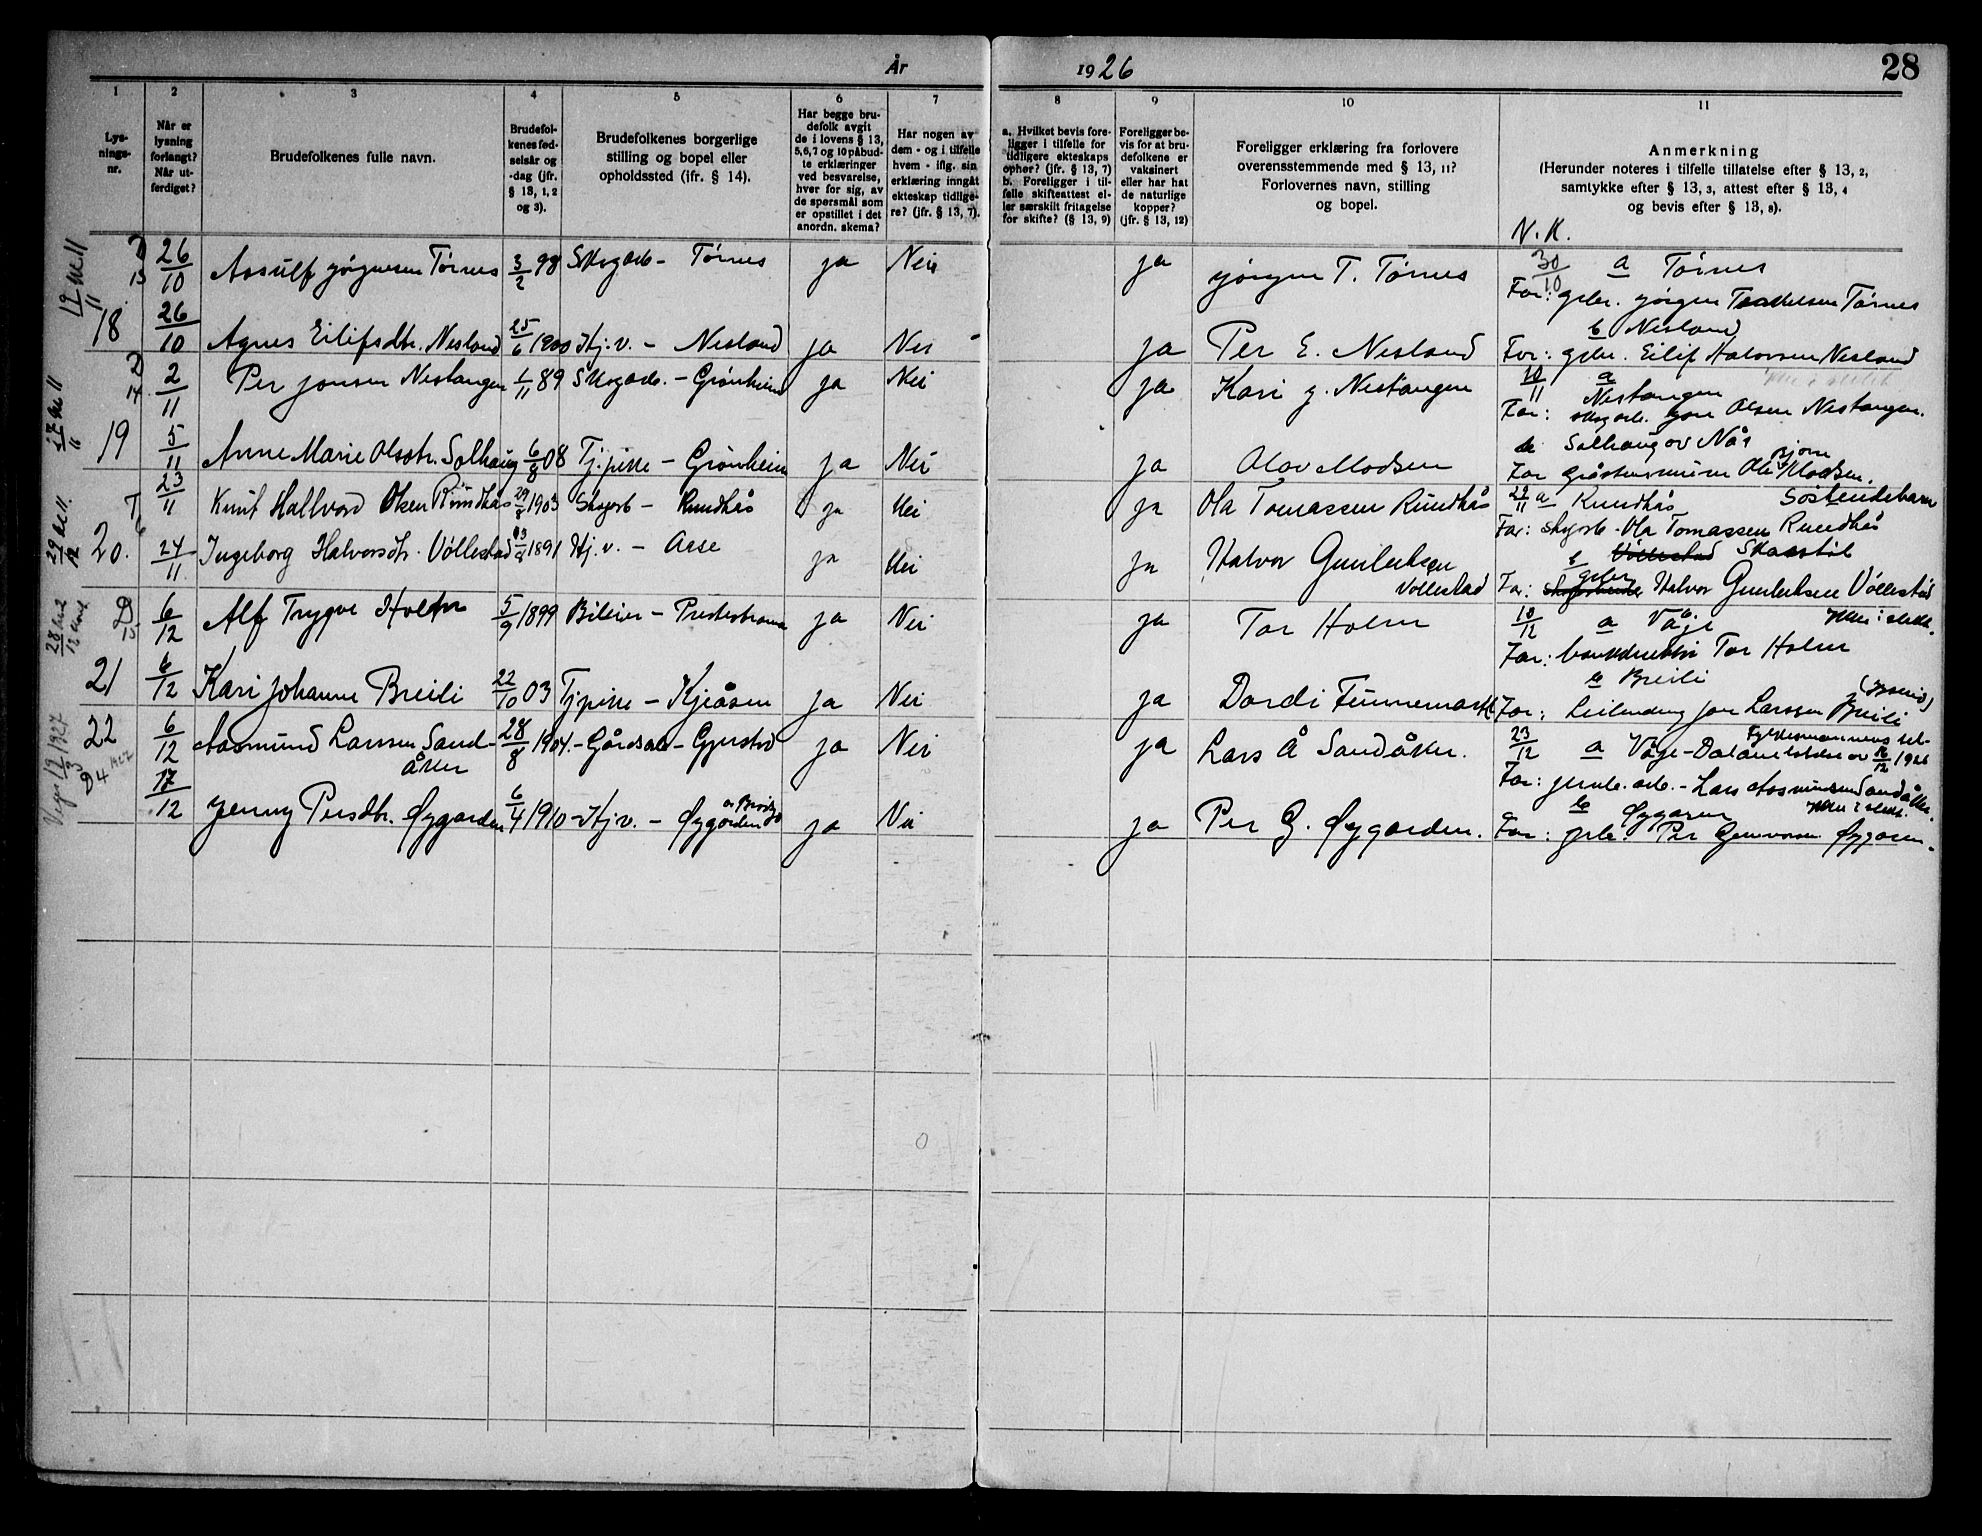 År 1926
28
1
2
3
4
5
6
7
8
9
10
11
Lysnings-nr.
Når er lysning forlangt? Når utferdiget?
Brudefolkenes fulle navn.
Brudefolkenes fødselsår og -dag (jfr. § 13, 1, 2 og 3).
Brudefolkenes borgerlige stilling og bopel eller opholdssted (ifr. § 14).
Har begge brudefolk avgit de i lovens § 13, 5, 6, 7 og 10 påbudte erklæringer ved besvarelse, hver for sig, av de spørsmål som er opstillet i det anordn. skema?
Har nogen av dem - og i tilfelle hvem - iflg. sin erklæring inngåt ekteskap tidligere? (jfr. § 13, 7).
a. Hvilket bevis foreligger i tilfelle for tidligere ekteskaps ophør? (jfr. § 13, 7) b. Foreligger i tilfelle skifteattest eller særskilt fritagelse for skifte? (§ 13, 9)
Foreligger bevis for at brudefolkene er vaksinert eller har hat de naturlige kopper? (jfr. § 13, 12)
Foreligger erklæring fra forlovere overensstemmende med § 13, 11? Forlovernes navn, stilling og bopel.
Anmerkning (Herunder noteres i tilfelle tillatelse efter § 13, 2, samtykke efter § 13, 3, attest efter § 13, 4 og bevis efter § 13, 8).
N.K.
D 13 26/10 Aasulf Jørgensen Tørnes 3/2 98 Skogarb - Tørnes ja Nei ja Jørgen T. Tørnes 30/10 a Tørnes
Far: gbr. Jørgen Tørnes
18 26/10 Agnes Eilifsdtr. Nesland 25/6 1900 Hj.v. - Nesland ja Nei ja Per E. Nesland b Nesland
Far: gbr. Eilif Halvorsen Nesland
D 14 2/11 Per Jonsen Nestangen 1/11 89 Skogarb. - Grønheim ja Nei ja Kari J. Nestangen 10/11 a Nestangen
Far: skogarb. Jon Olsen Nestangen.
19 5/11 Anne Marie Olsdtr. Solhaug 6/8 08 Tj.pike - Grønheim ja Nei ja Olav Madsen b Solhaug av Nås
Far Ole Bjørn Madsen.
23/11 Knut Hallvard Olsen Rundhås 1903 Skogarb - Rundhås ja Nei ja Ola Tomassen Rundhås 29/11 a Rundhås Søskendebarn
Far: skogarb. Ola Tomassen Rundhås
20. 24/11 Ingeborg Halvorsdtr. Vøllestad 1891 Hj.v. - Aase ja Nei ja Halvor Gunleiksen Vøllestad b Vøllestad
Far: gbr Halvor Gunleiksen Vøllestad
D 15 6/12 Alf Trygve Holm 5/9 1899 Bileier - Prestestranda ja Nei ja Tor Holm 18/12 a Våje Ikke i slekt.
Far: Tor Holm
21 6/12 Kari Johanne Breili 22/10 03 Tj.pike - Kjeåsen ja Nei ja Dordi Finnemark b Breili
Far: Leilending Jon Larssen Breili
22 6/12 Aasmund Larssen Sandåker 28/8 1904 - Gårdsarb - Gjerstad ja Nei ja Lars Å Sandåker. 23/12 a Våje - Fylkesmannens 16/12 1926
Far: Lars Aasmundsen Sandåker.
D 4 1927
17/12 Jenny Persdtr. Øygarden 6/4 1910 - Hj.v. - Øygarden ja Nei ja Per G. Øygarden. b Øygaren Ikke i slekt.
Far: gbr. Per Gunvorsen Øygaren.